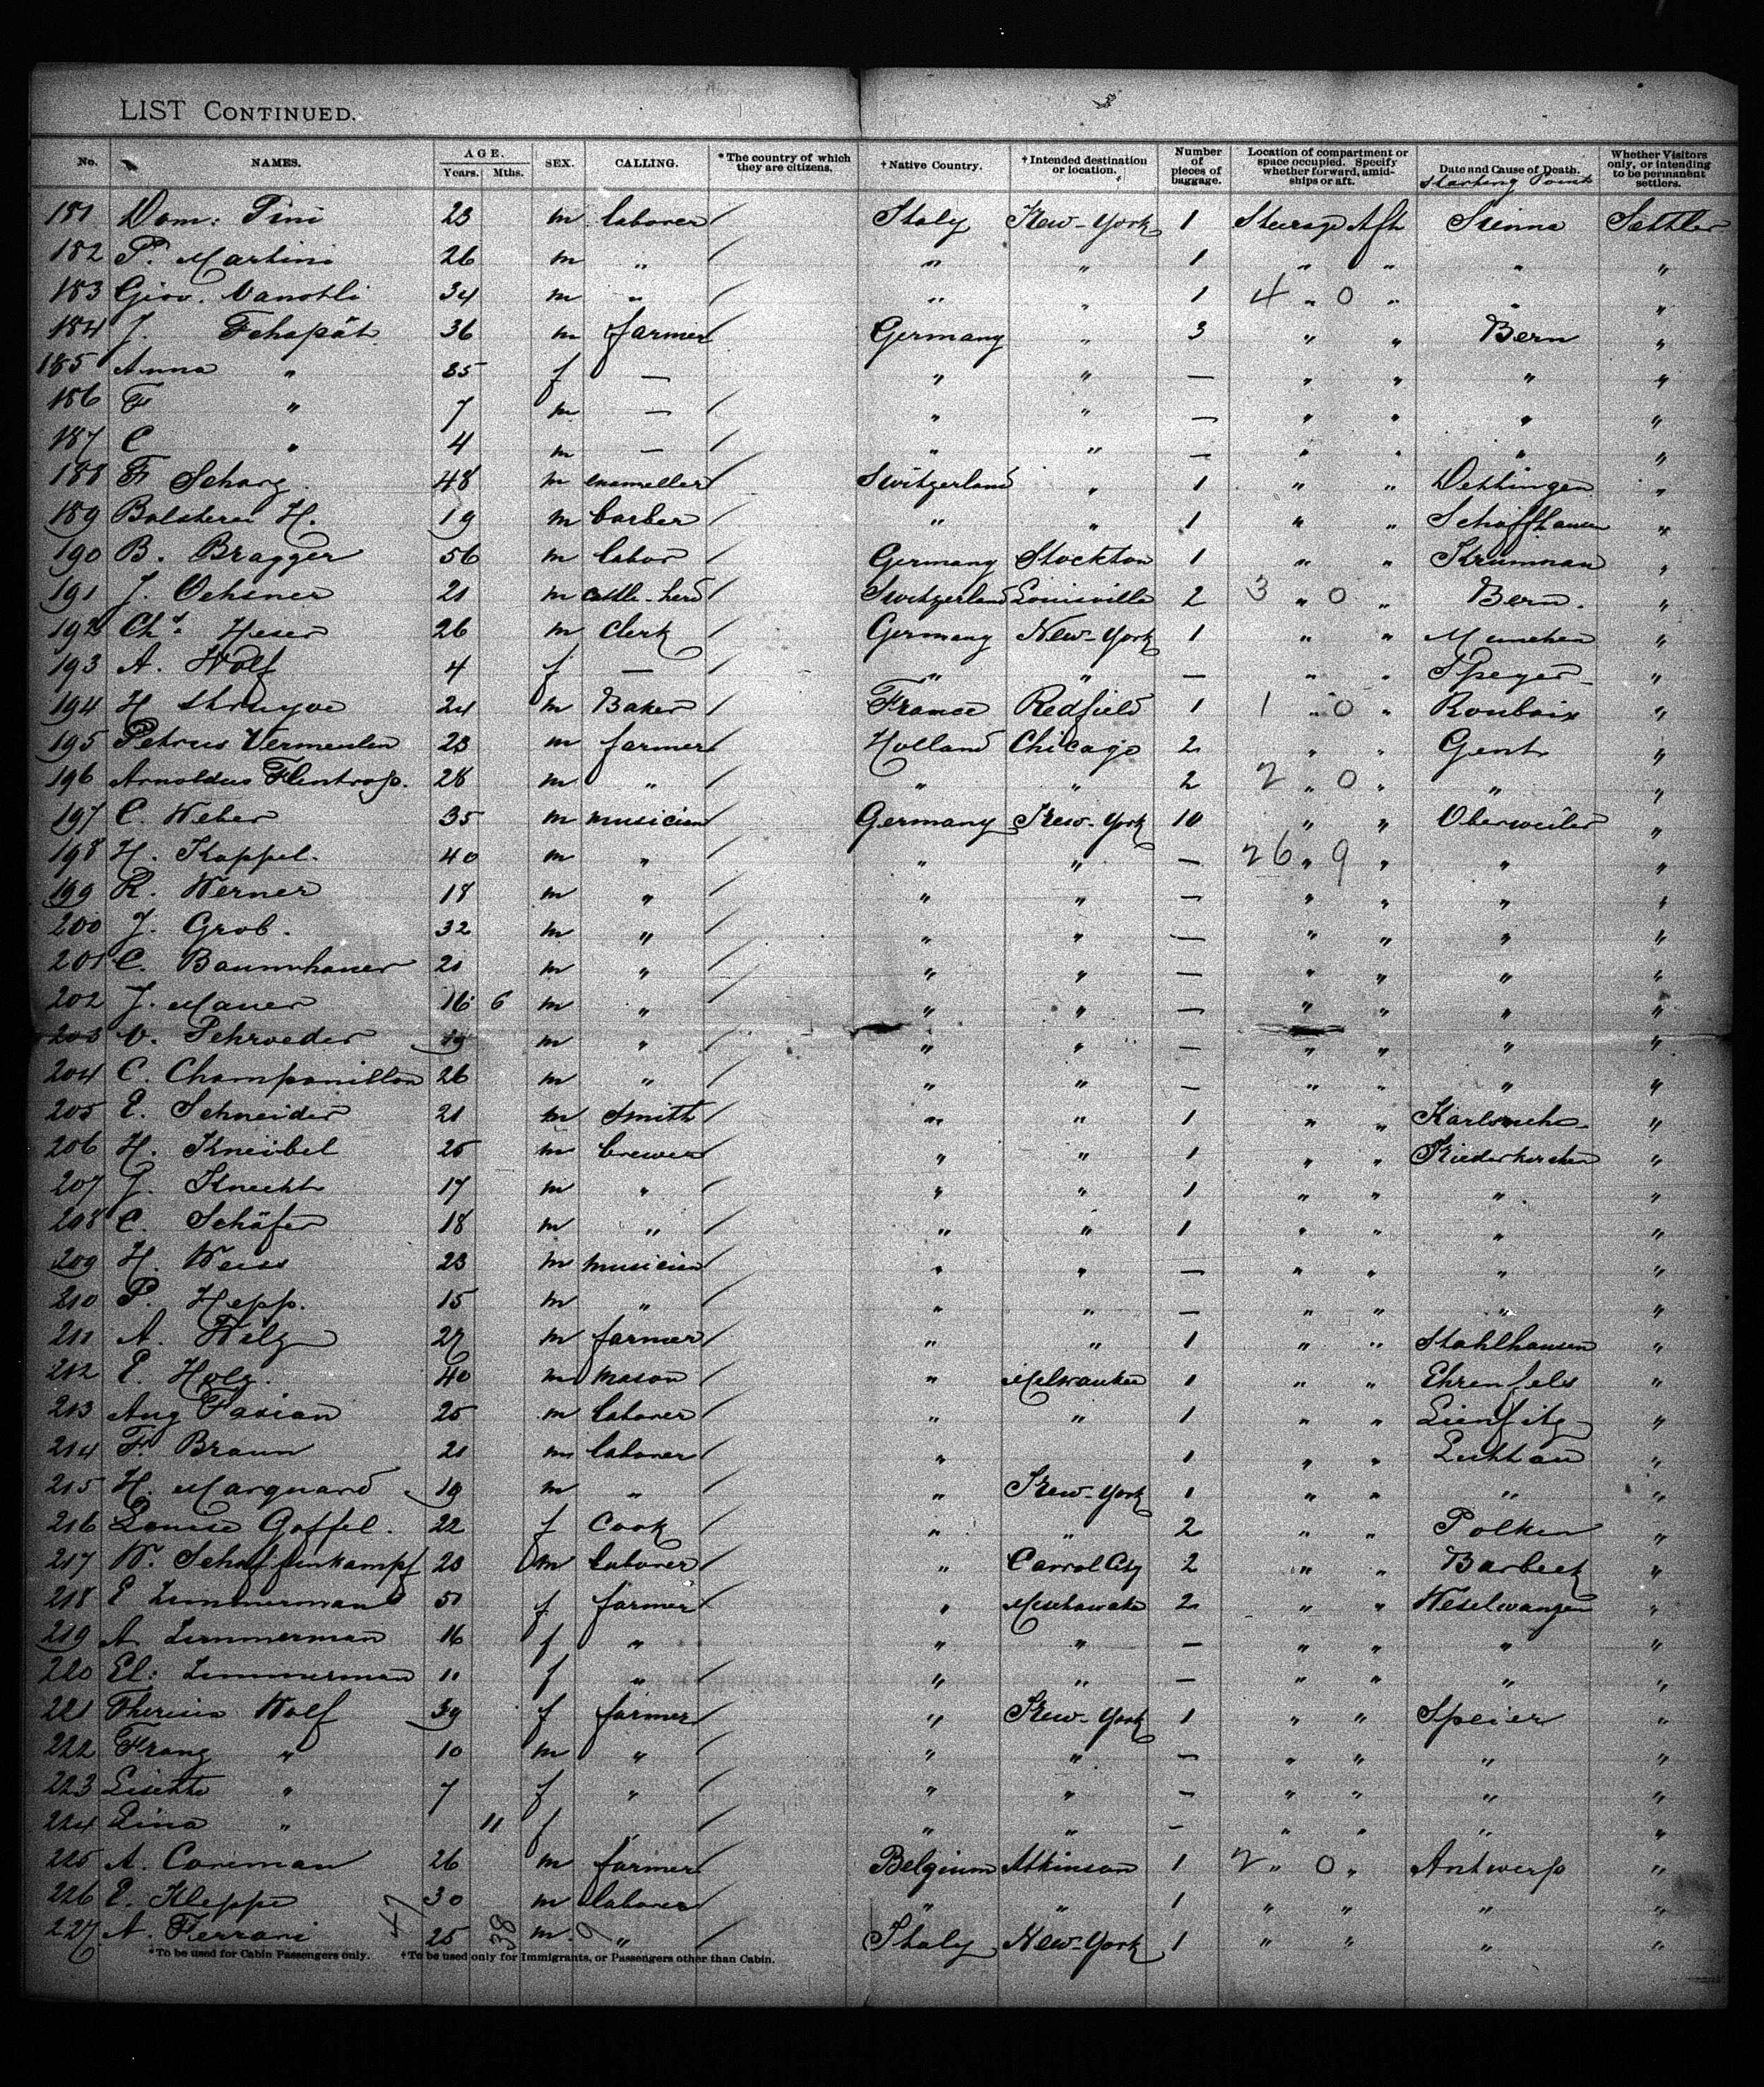 LIST CONTINUED.
No. NAMES. AGE. Years. Mths. SEX. CALLING. *The country of which they are citizens. †Native Country. †Intended destination or location. Number of pieces of baggage. Location of compartment or space occupied. Specify whether forward, amidships or aft. Date and Cause of Death. Starting Point Whether Visitors only, or intending to be permanent settlers.
181 Dom: Pini 23 m laborer / Italy New-York 1 Steerage Aft Sienna Settler
182 P. Martini 26 m " / " " 1 " " " "
183 Giov. Vanotti 34 m " / " " 1 4 " 0 " " "
184 J. 36 m farmer / Germany " 3 " " Bern "
185 Anna " 35 f — / " " — " " " "
186 F " 7 m — / " " — " " " "
187 C " 4 m — / " " — " " " "
188 F Scharz. 48 m enameller / Switzerland " 1 " " Dettingen "
189 H. 19 m barber / " " 1 " " Schaffhausen "
190 B. Bragger 56 m labor / Germany Stockton 1 " " Krumman "
191 J. Ochsner 21 m cattle-herd / Switzerland Louisville 2 3 " 0 " Bern. "
192 Chs. Heser 26 m Clerk / Germany New-York 1 " " Munchen "
193 A. Wolf 4 f — / " " — " " Speyer "
194 H Struyve 24 m Baker / France Redfield 1 1 " 0 " Roubaix "
195 Petrus Vermeulen 23 m farmer / Holland Chicago 2 " " Gent "
196 Arnoldus Flintrop. 28 m " / " " 2 2 " 0 " " "
197 C. Weber 35 m musician / Germany New-York 10 " " Oberweiler "
198 H. Kappel. 40 m " / " " — 26 " 9 " " "
199 R. Werner 18 m " / " " — " " " "
200 J. Grob. 32 m " / " " — " " " "
201 C. Baumhauer 21 m " / " " — " " " "
202 J. Mauer 16 6 m " / " " — " " " "
203 V. Schroeder 19 m " / " " — " " " "
204 C. Champonillon 26 m " / " " — " " " "
205 E. Schneider 21 m Smith / " " 1 " " Karlsruhe "
206 H. Kneibel 25 m brewer / " " 1 " " Niederkirchen "
207 J. Knecht 17 m " / " " 1 " " " "
208 C. Schäfer 18 m " / " " 1 " " " "
209 H. Weiss 23 m musician / " " — " " " "
210 P. Hepp. 15 m " / " " — " " " "
211 A. Welz 27 m farmer / " " 1 " " Stahlhausen "
212 E. Holz. 40 m mason / " Milwaukee 1 " " Ehrenfels "
213 Aug Fasian 25 m laborer / " " 1 " " "
214 F. Braun 21 m laborer / " 1 " " Luttau "
215 H. Marquard 19 m " / " New-York 1 " " " "
216 Louise Goffel. 22 f Cook / " " 2 " " Polken "
217 W. Schaffenkampf 23 m laborer / " Carrol City 2 " " Barbeck "
218 E Zimmerman 51 f farmer / " Mischawaka 2 " " Weselwangen "
219 A Zimmerman 16 f " / " " — " " " "
220 El: Zimmerman 11 f " / " " — " " " "
221 Theresia Wolf 39 f farmer / " New-York 1 " " Speier "
222 Franz " 10 m " / " " — " " " "
223 Lisette " 7 f " / " " — " " " "
224 Lina " 11 f " / " " — " " " "
225 A. Coreman 26 m farmer / Belgium Atkinson 1 2 " 0 " Antwerp "
226 E. Kleppe 30 m laborer / " " 1 " " " "
227. A. Ferrari 25 m. " / Italy New-York 1 " " " "
47 38 9
*To be used for Cabin Passengers only. †To be used only for Immigrants, or Passengers other than Cabin.